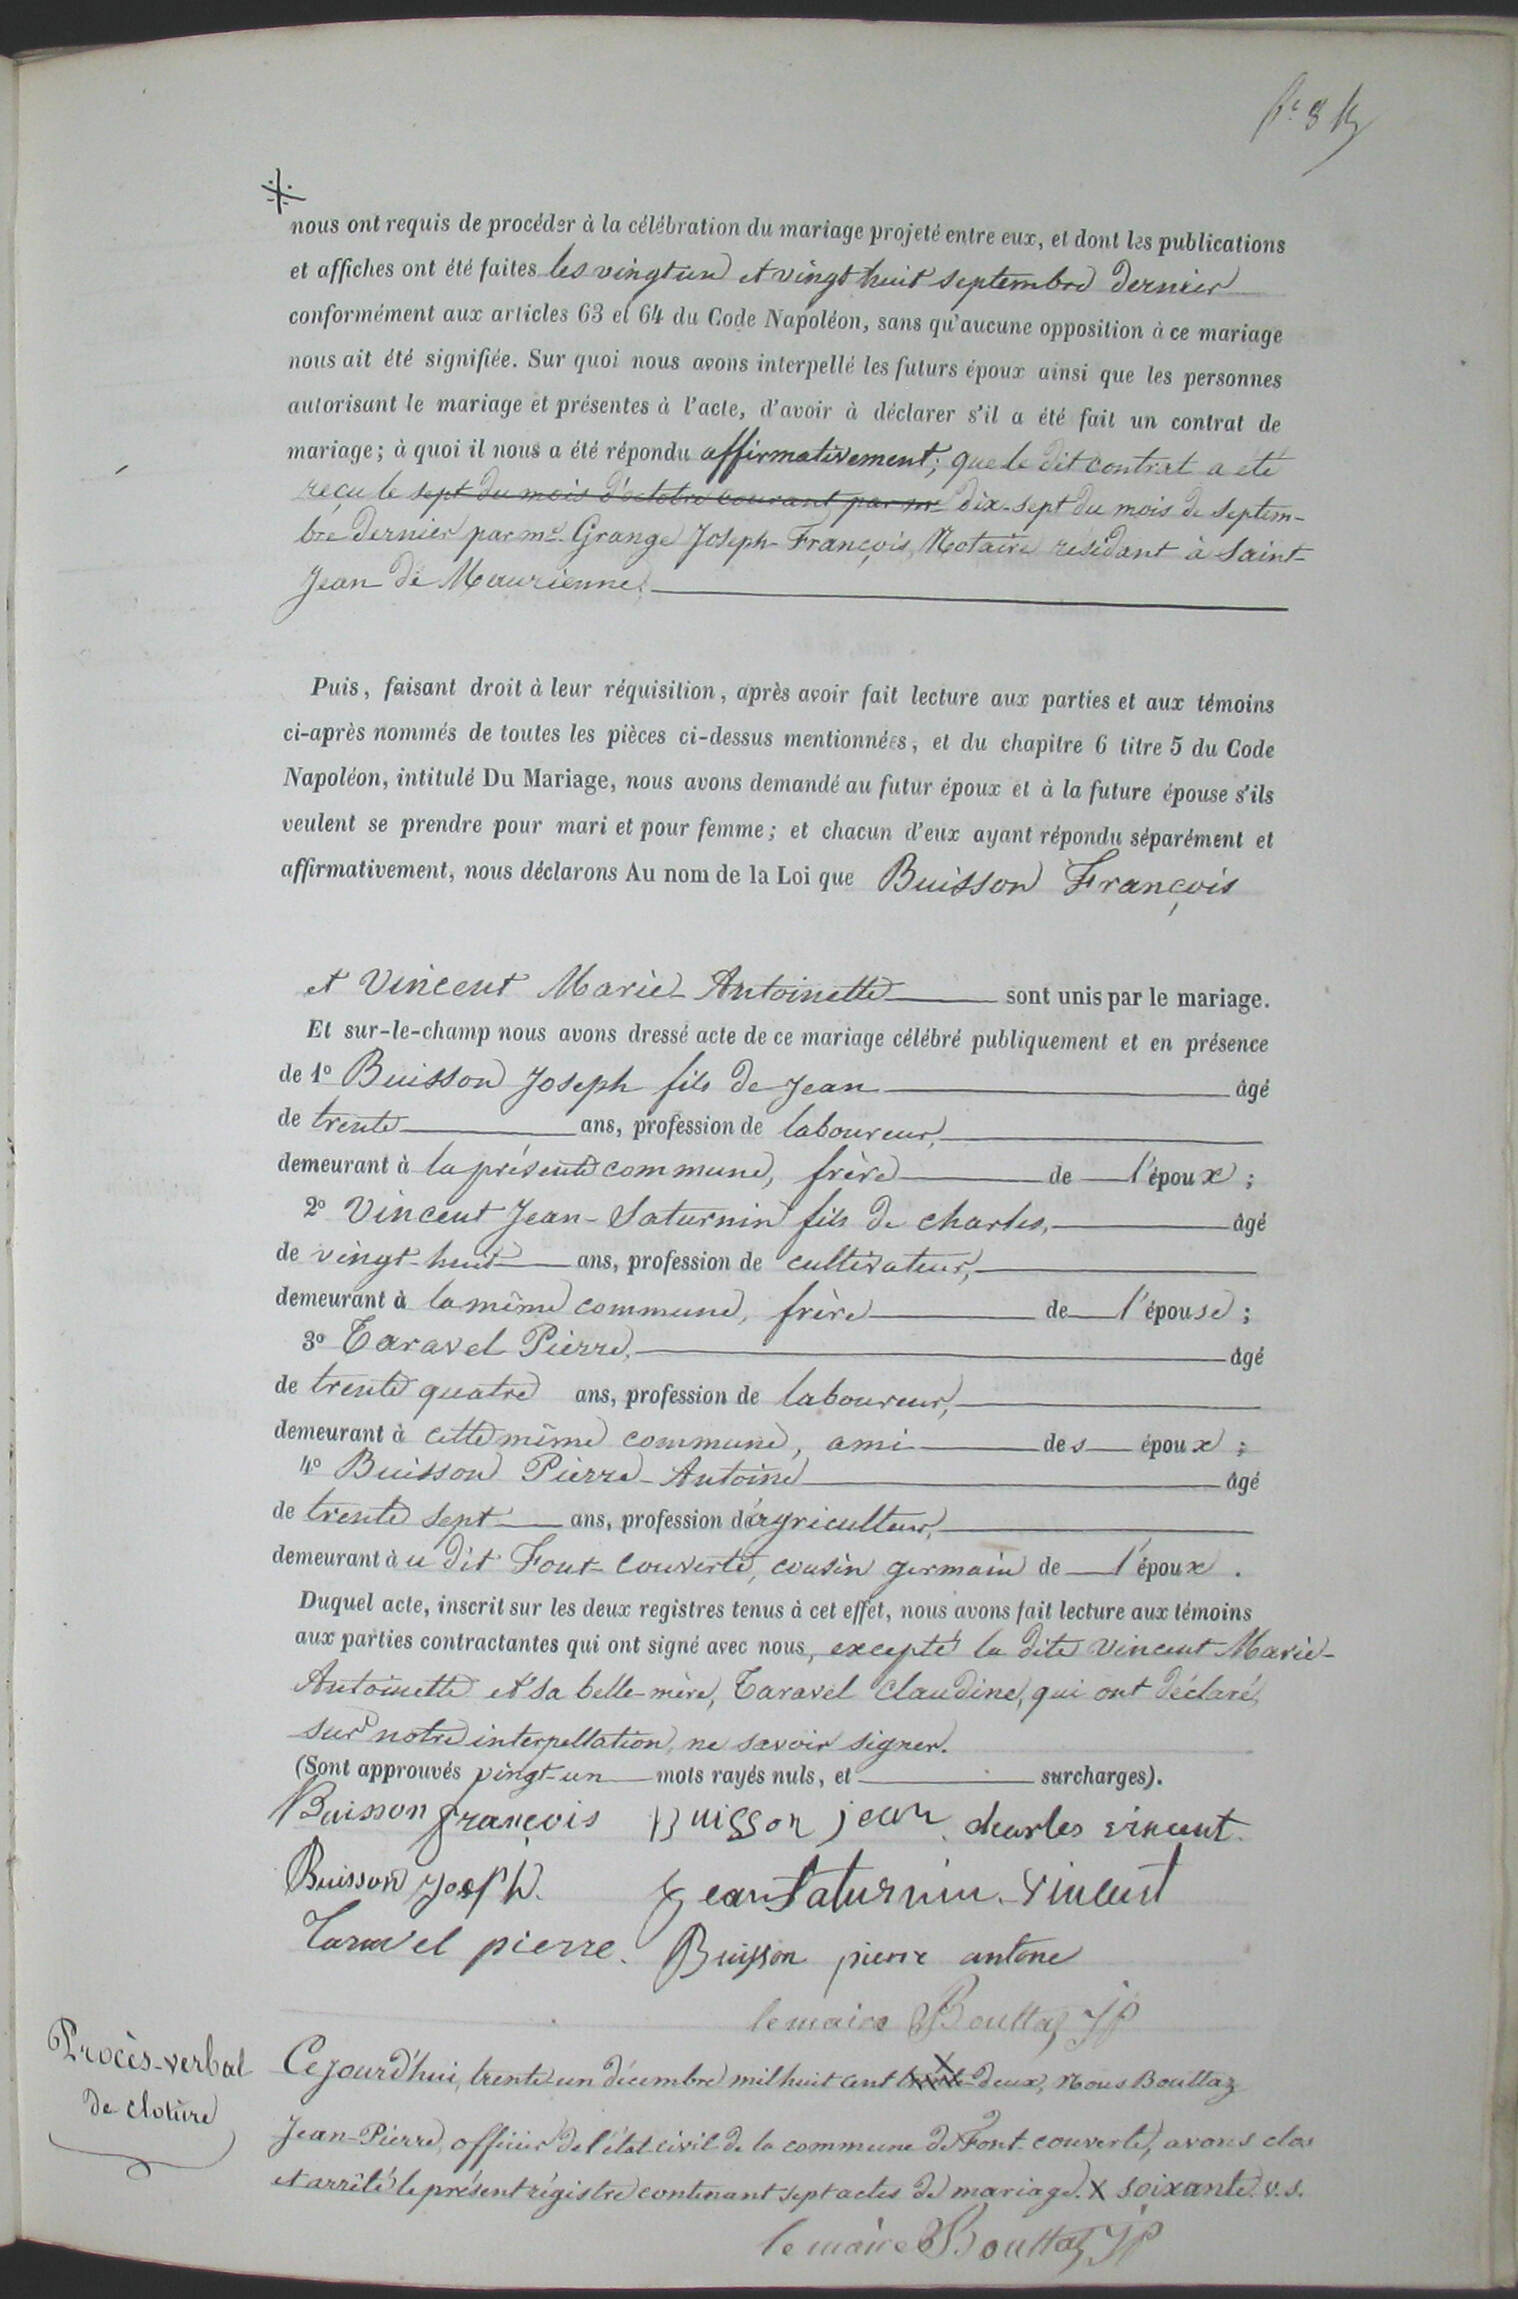 nous ont requis de procéder à la célébration du mariage projeté entre eux, et dont les publications
et affiches ont été faites les vingt un et vingt huit septembre dernier
conformément aux articles 63 et 64 du Code Napoléon, sans qu'aucune opposition à ce mariage
nous ait été signifiée. Sur quoi nous avons interpellé les futurs époux ainsi que les personnes
autorisant le mariage et présentes à l'acte, d'avoir à déclarer s'il a été fait un contrat de
mariage; à quoi il nous a été répondu affirmativement; que le dit contrat a été
reçu le sept du mois d'octobre courant par me dix-sept du mois de septem-
bre dernier par me Grange Joseph-François, Notaire résidant à Saint-
Jean-de Maurienne.
Puis, faisant droit à leur réquisition, après avoir fait lecture aux parties et aux témoins
ci-après nommés de toutes les pièces ci-dessus mentionnées, et du chapitre 6 titre 5 du Code
Napoléon, intitulé Du Mariage, nous avons demandé au futur époux et à la future épouse s'ils
veulent se prendre pour mari et pour femme; et chacun d'eux ayant répondu séparément et
affirmativement, nous déclarons Au nom de la Loi que Buisson François
et Vincent Marie-Antoinette sont unis par le mariage.
Et sur-le-champ nous avons dressé acte de ce mariage célébré publiquement et en présence
de 1º Buisson Joseph fils de Jean âgé
de trente ans, profession de laboureur,
demeurant à la présente commune, frère de l'époux;
2º Vincent Jean-Saturnin fils de charles, âgé
de vingt-huit ans, profession de cultivateur,
demeurant à la même commune, frère de l'épouse;
3º Taravel Pierre, âgé
de trente quatre ans, profession de laboureur,
demeurant à cette même commune, ami des époux;
4º Buisson Pierre-Antoine âgé
de trente sept ans, profession d'agriculteur,
demeurant au dit Font-couverte, cousin germain de l'époux.
Duquel acte, inscrit sur les deux registres tenus à cet effet, nous avons fait lecture aux témoins
aux parties contractantes qui ont signé avec nous, excepté la dite Vincent Marie-
Antoinette et sa belle-mère, Taravel Claudine, qui ont déclaré,
sur notre interpellation, ne savoir signer.
(Sont approuvés vingt-un mots rayés nuls, et surcharges).
Buisson françois Buisson jean charles vincent.
Buisson Joseph. Jean Saturnin Vincent
Taravel pierre. Buisson pierre antone
le maire Bouttaz JP
Procès-verbal
de clôture
Cejourd'hui, trente-un décembre mil huit cent trente-deux, Nous Bouttaz
Jean-Pierre, officier de l'état civil de la commune de Font-couverte, avons clos
et arrêté le présent régistre contenant sept actes de mariage. X soixante. v.s.
le maire Bouttaz JP